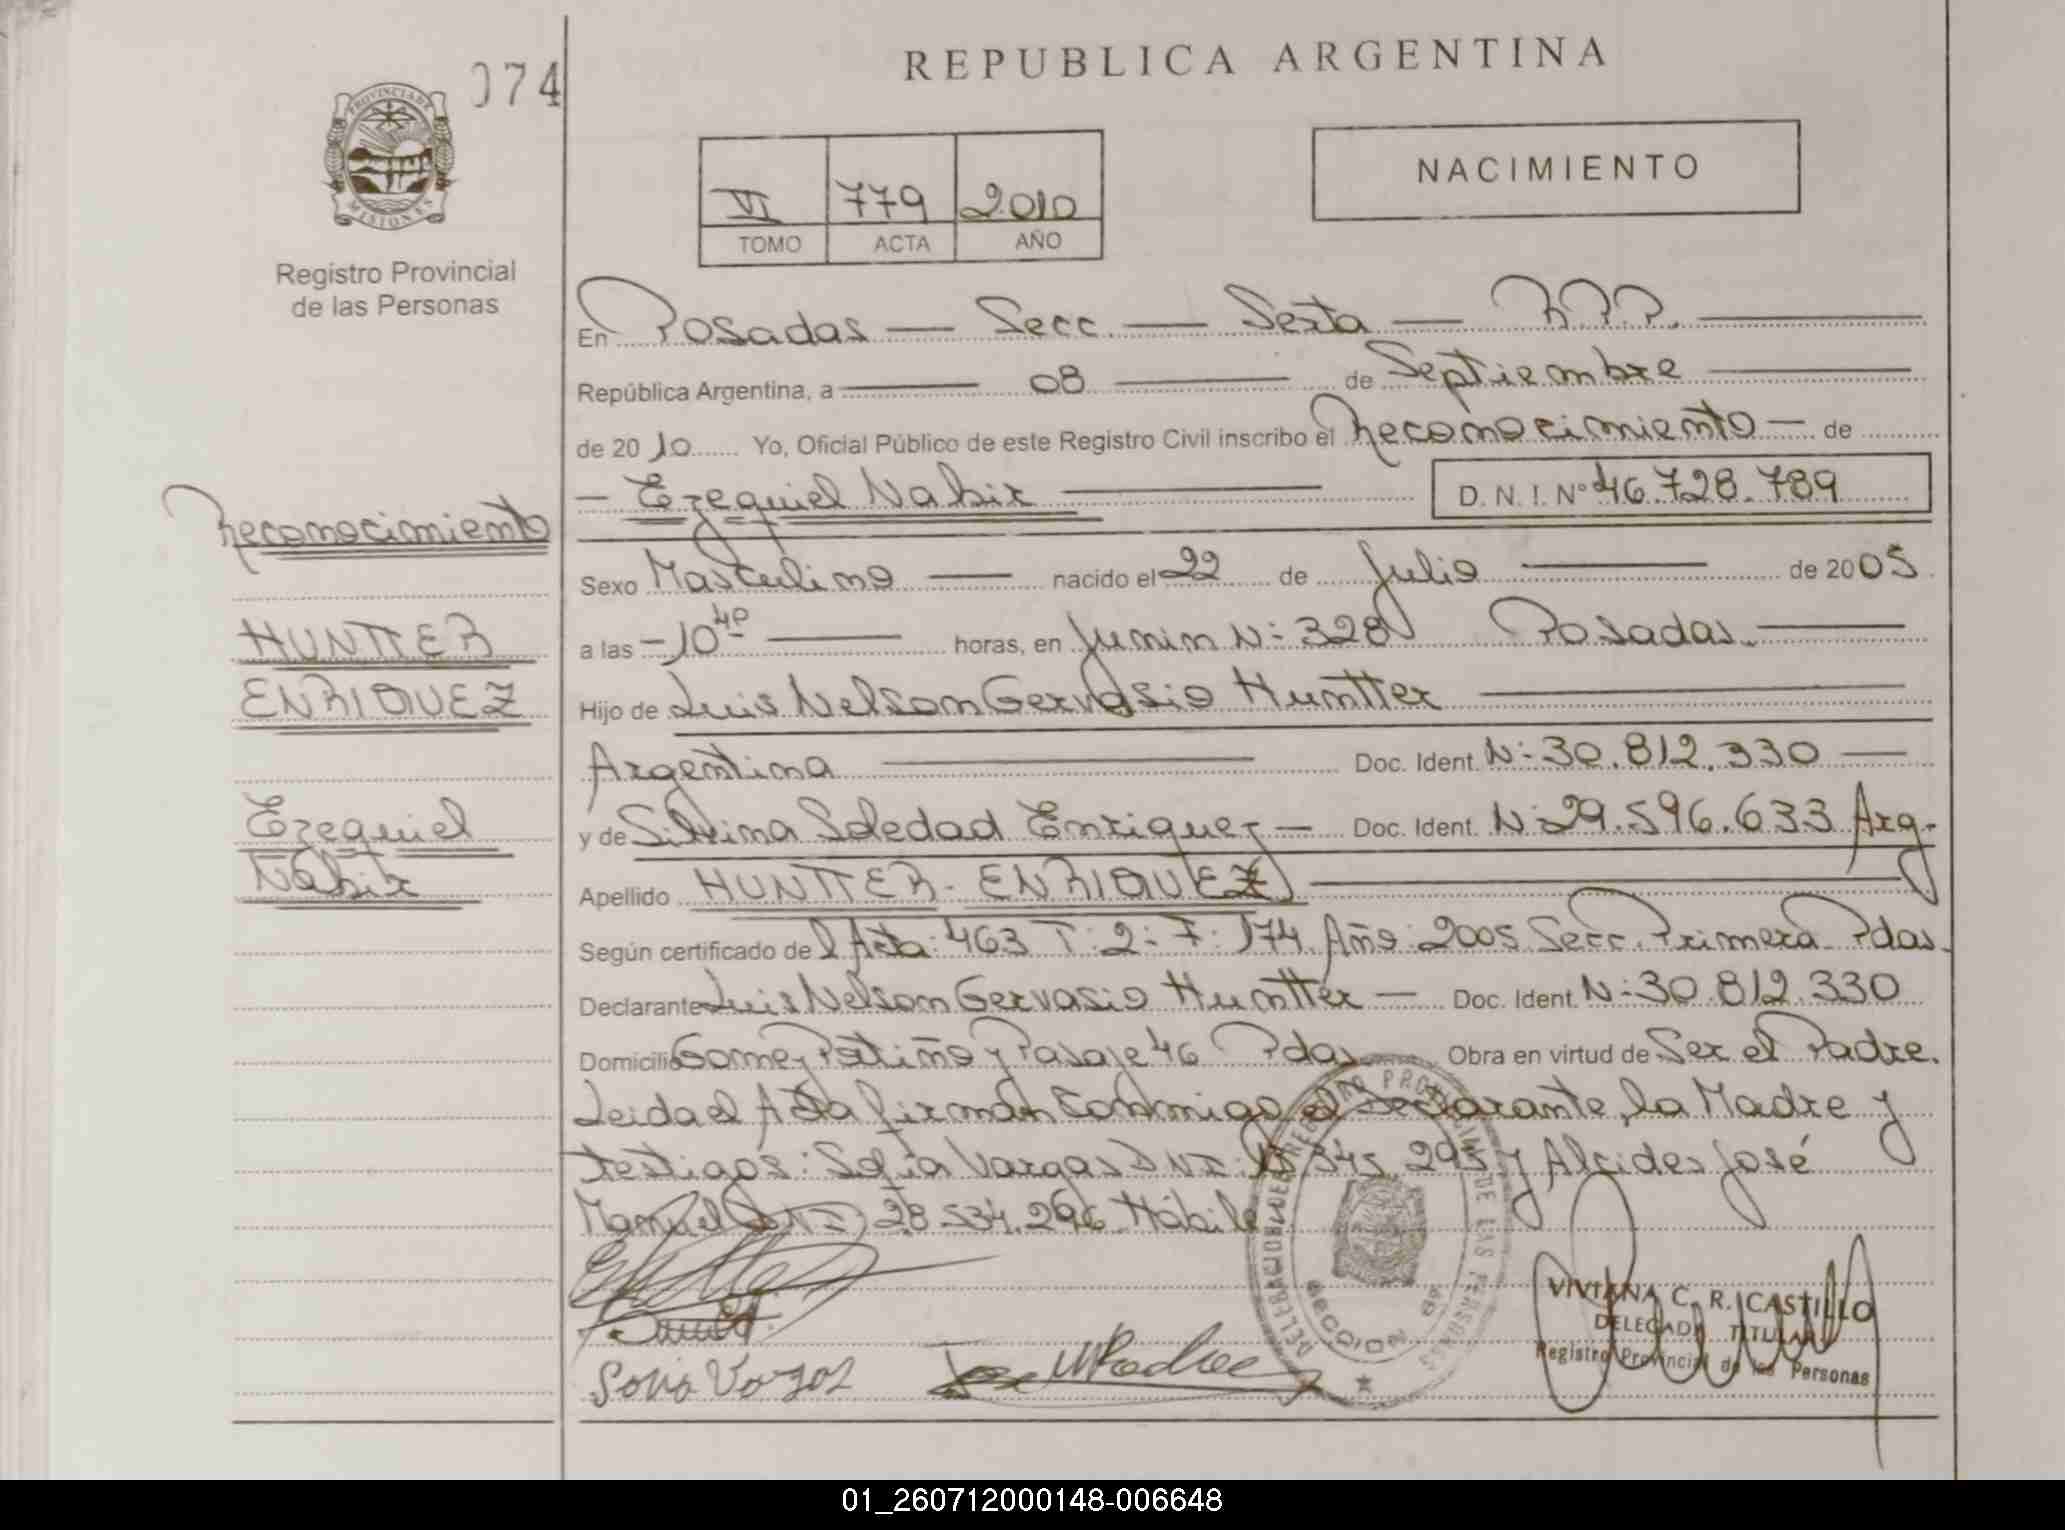 074
REPUBLICA ARGENTINA
PROVINCIA DE
MISIONES
Registro Provincial
de las Personas
VI 779 2010
TOMO ACTA AÑO
NACIMIENTO
En Posadas — Secc. — Sexta — R.P.P. —
República Argentina, a — 08 — de Septiembre —
de 2010 Yo, Oficial Público de este Registro Civil inscribo el Reconocimiento — de
— Ezequiel Nahir — D. N. I. Nº 46.728.789
Reconocimiento
Sexo Masculino — nacido el 22 de Julio — de 2005
a las — 10 40 — horas, en Junin Nº 328 Posadas. —
HUNTTER
ENRIQUEZ
Hijo de Luis Nelson Gervasio Huntter —
Argentina — Doc. Ident. Nº 30.812.330 —
y de Silvina Soledad Enriquez — Doc. Ident. Nº 29.596.633 Arg.
Ezequiel
Nahir
Apellido HUNTTER - ENRIQUEZ —
Según certificado de l Acta: 463 T: 2: F: 174 Año: 2005 Secc. Primera Pdas.
Declarante Luis Nelson Gervasio Huntter — Doc. Ident. Nº 30.812.330
Domicilio Gomez Patiño y Pasaje 46 Pdas Obra en virtud de Ser el Padre.
Leida el Acta firman Conmigo el Declarante, la Madre y
testigos: Sofia Vargas DNI: 345 295 y Alcides José
Manuel DNI 28.534.296 Hábile
Sofia Vargas
VIVIANA C. R. CASTILLO
DELEGADA TITULAR
Registro Provincial de las Personas
01_260712000148-006648